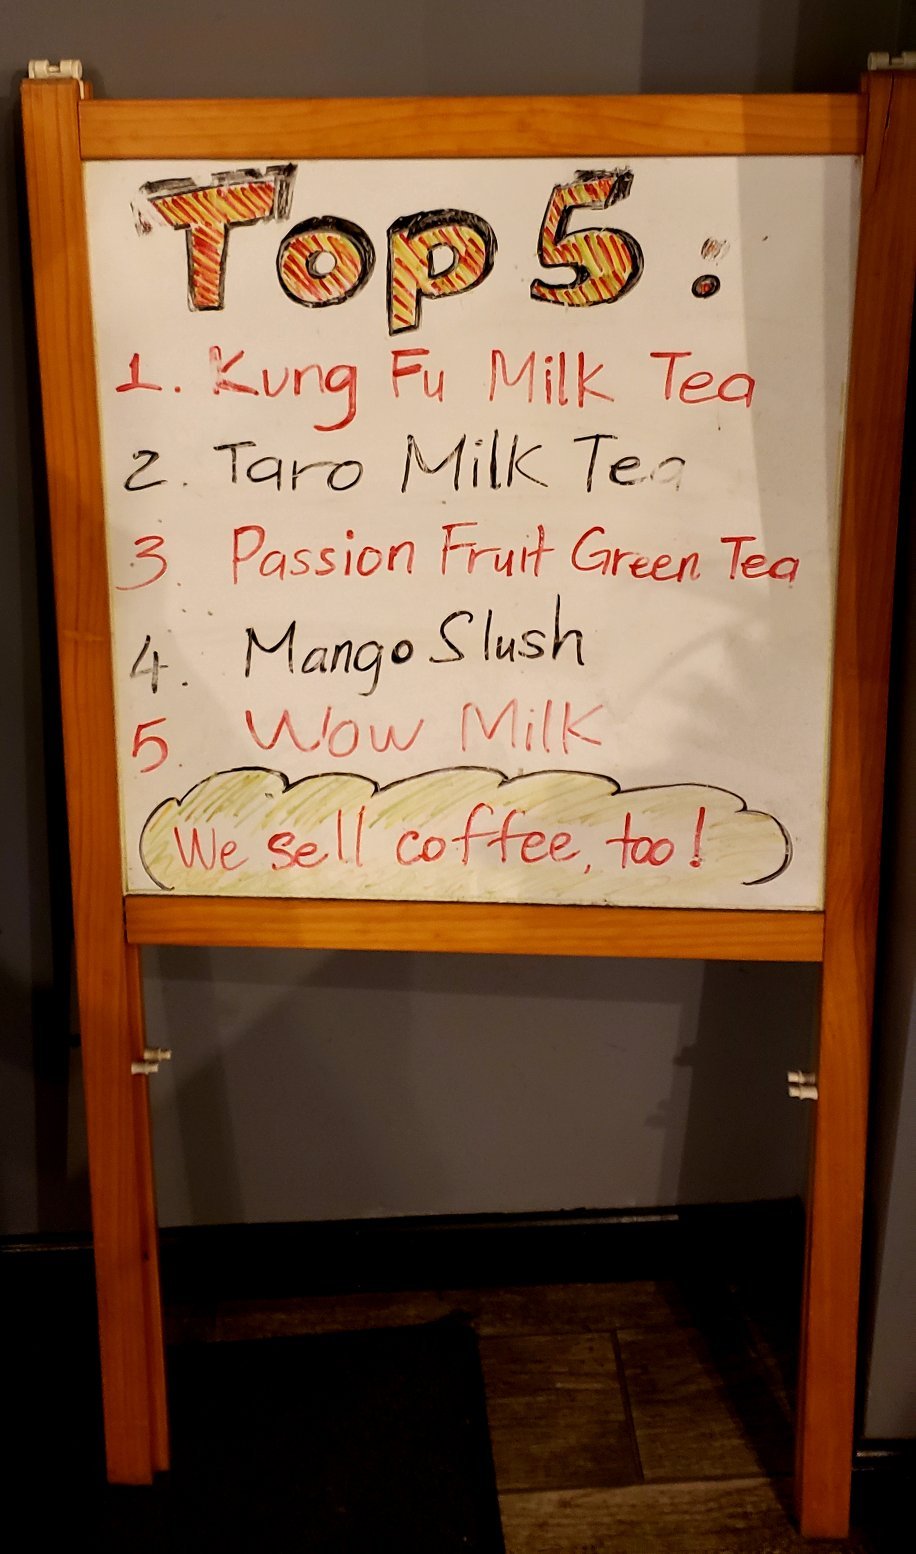 Top 5:
1. Kung Fu Milk Tea
2. Taro Milk Tea
3. Passion Fruit Green Tea
4. Mango Slush
5. Wow Milk
We sell coffee, too!